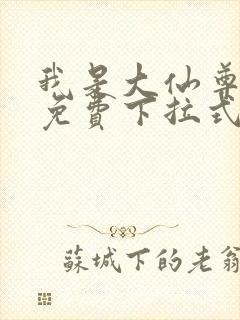 我是大仙尊
免費下拉式
蘇城下的老翁